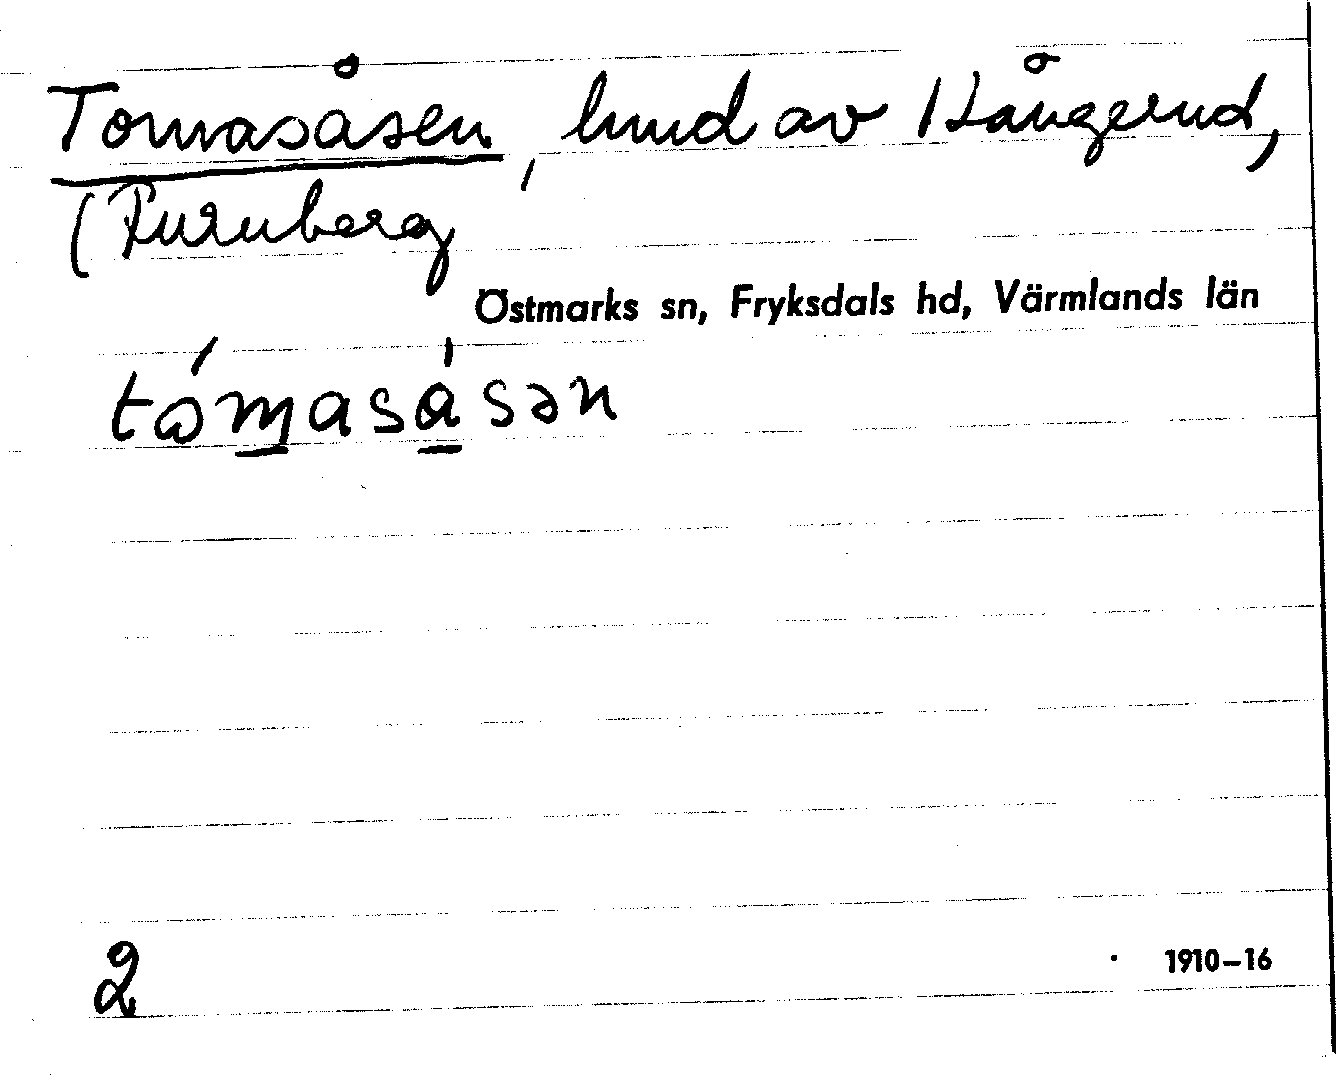 Tomasåsen, lund av Hångerud,
(Furuberg
Östmarks sn, Fryksdals hd, Värmlands län
tómasásən
2
1910–16